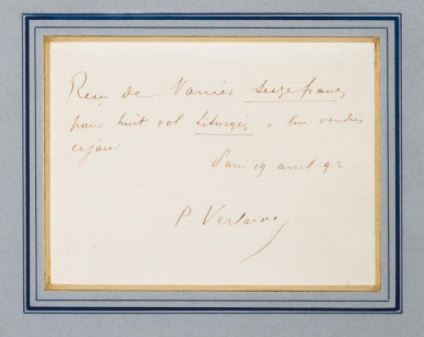 Reçu de Vanier seize francs
pour huit vol Liturgies à lui vendus
ce jour
Paris 19 avril 92.
P. Verlaine